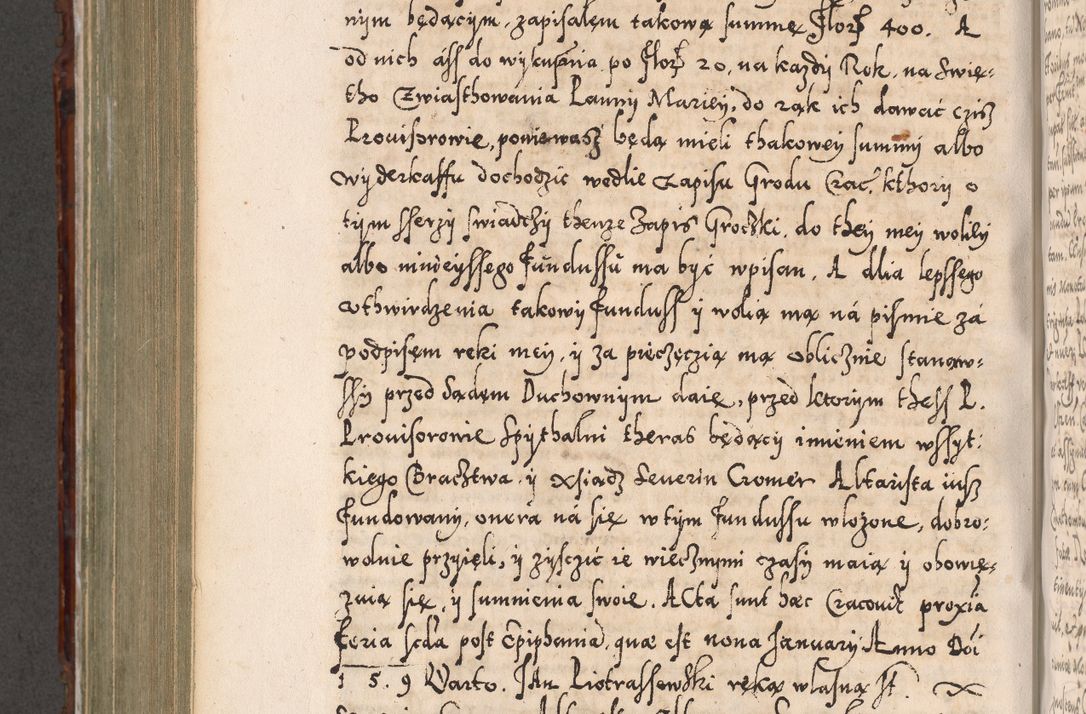 nym będącym, zapisałem takową summę Flor 400. A
od nich ass do wykupnia po Flor 20, na każdy Rok, na Swię-
tho Zwiasthowania Panny Mariey, do rąk ich dawać czisz
Prouisorowie, poniewasz będą mieli thakowey summy albo
wyderkaffu dochodzic wedlie Zapisu Grodu Crac. kthory o
tym sserzy swiadczy thenze Zapis Grodzki, do they mey woliey
albo ninieyssego Fundussu ma być wpisan. A dlia lepssego
othwirdzenia takowy Funduss y wolią mą ná pismie zá
podpisem reki mey, y za pieczęczią mą oblicznie stanow-
ssy przed Sądem Duchownym daię, przed ktorym thess P.
Prouisorowie Spythalni theras będący imieniem wssyt-
kiego Bractwa, y Xsiądz Seuerin Cromer Altarista iusz
Fundowany, onera ná się w tym Fundussu wlożone, dobro-
wolnie przyięli, y zysczić ie wiecznymi czasy maią y obowię-
zuią się, y sumnienia swoie. Acta sunt haec Cracouiae proxia
feria scda post Epiphaniā, quae est nona January Anno Dni
1 5. 9 Warto. Jan Piotrassewski ręką wlasną st.